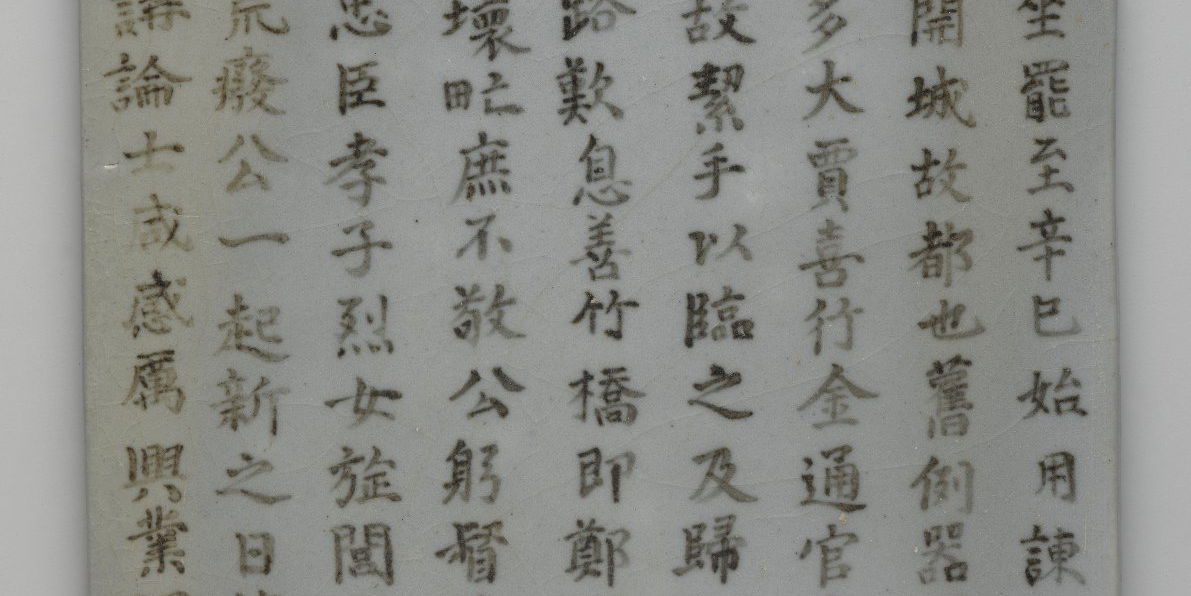 坐罷至辛巳始用諫
開城故都也舊例器
多大賈喜行金通官
故絜手以臨之及歸
路歎息善竹橋即鄭
壞甿庶不敬公躬督
忠臣孝子烈女旌閭
荒廢公一起新之日
講論士咸感厲興業